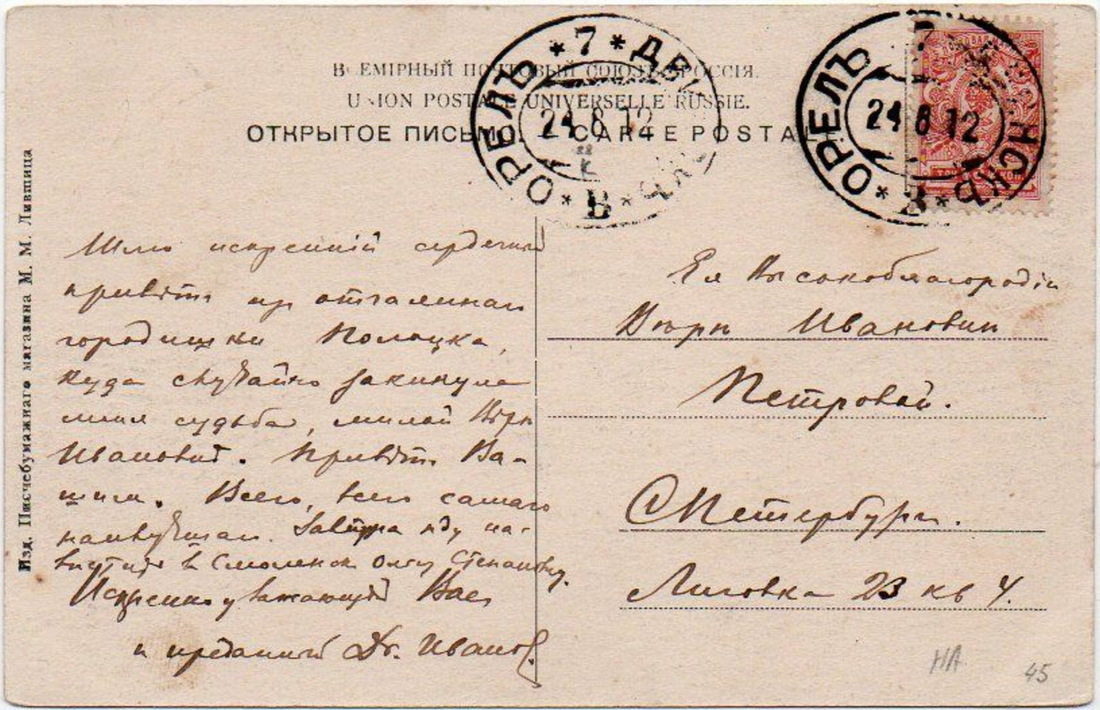 ВСЕМІРНЫЙ ПОЧТОВЫЙ СОЮЗЪ. РОССІЯ.
UNION POSTALE UNIVERSELLE RUSSIE.
ОТКРЫТОЕ ПИСЬМО. CARTE POSTALE.
ОРЕЛЪ * 7 * ДВИНСКЪ * В *
24 8 12
ОРЕЛЪ * 7 * ДВИНСКЪ * В *
24 8 12
Изд. Писчебумажнаго магазина М. М. Лившица
Шлю искренній сердечный
привѣтъ из
городишки Полоцка,
куда случайно закинула
меня судьба, милая Вѣра
Ивановна. Привѣтъ Ва-
шим. Всего, всего самаго
наилучшаго. Завтра иду на-
вѣстить в Смоленск Ольгу Степановну.
Искренно уважающій Вас
и преданный Дв. Иванов.
Ея Высокоблагородію
Вѣрѣ Ивановнѣ
Петровой.
С Петербургъ.
Лиговка 23 кв 4.
НА
45